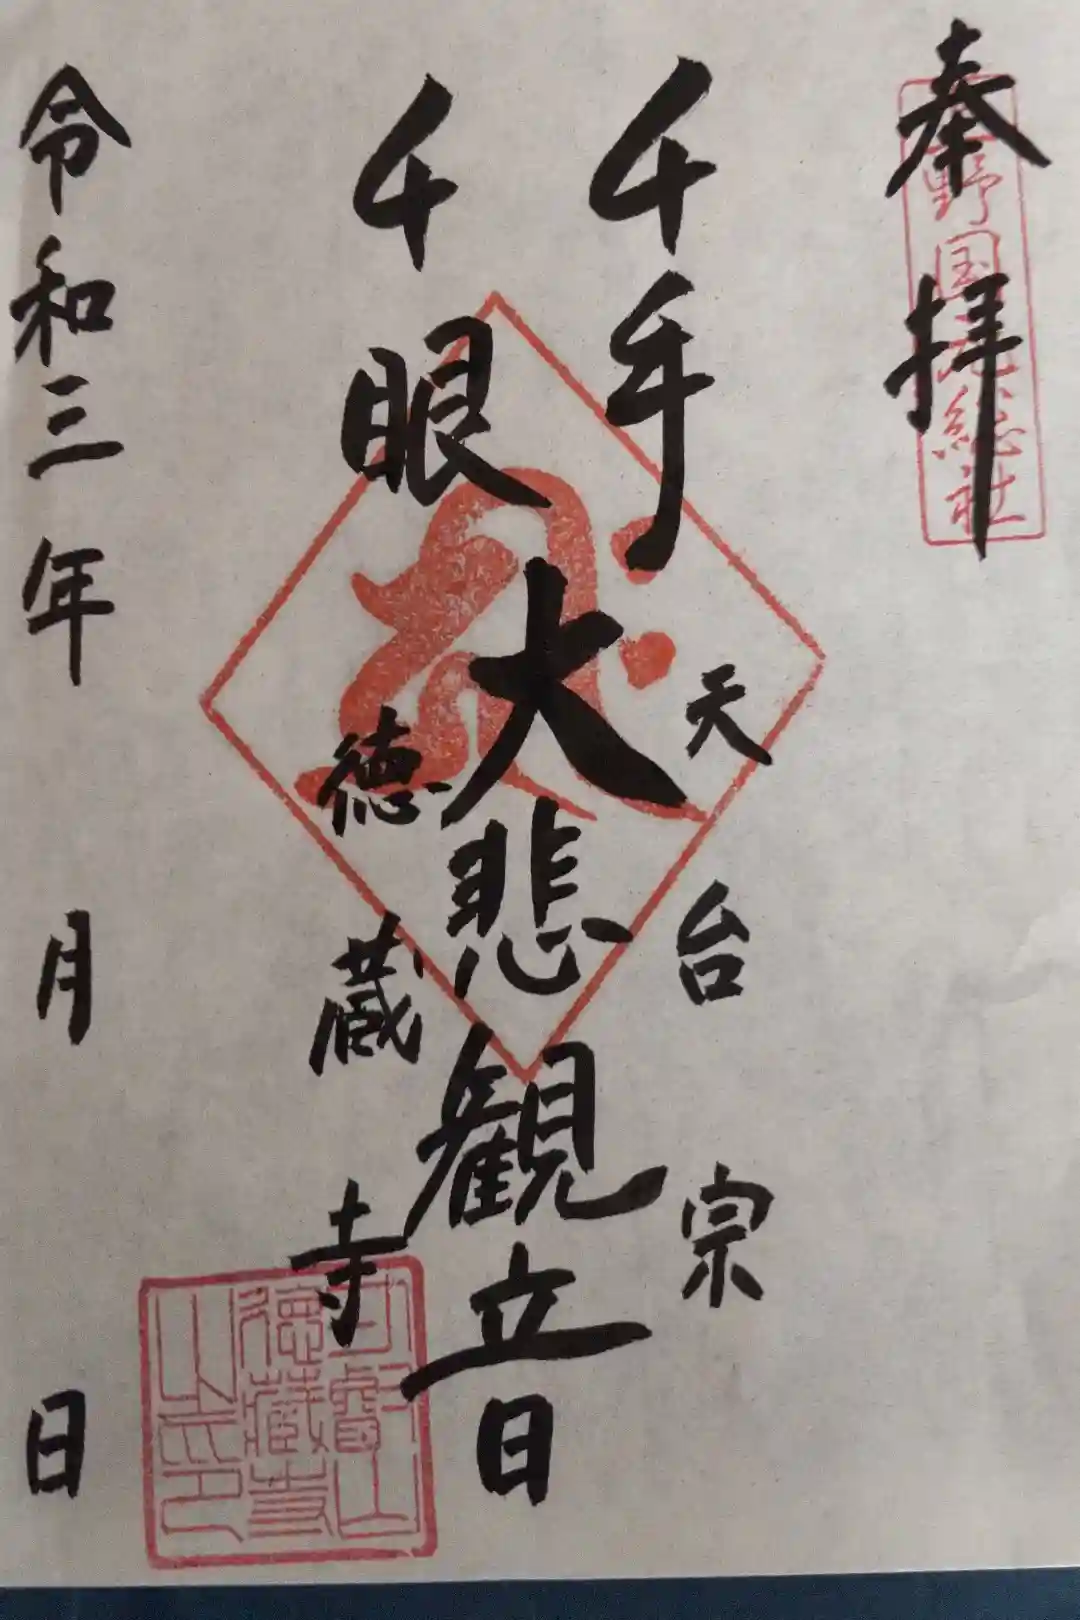 奉拝
野国総社
千手
千眼
大悲観音
天台宗
徳蔵寺
徳蔵寺
令和三年　月　日